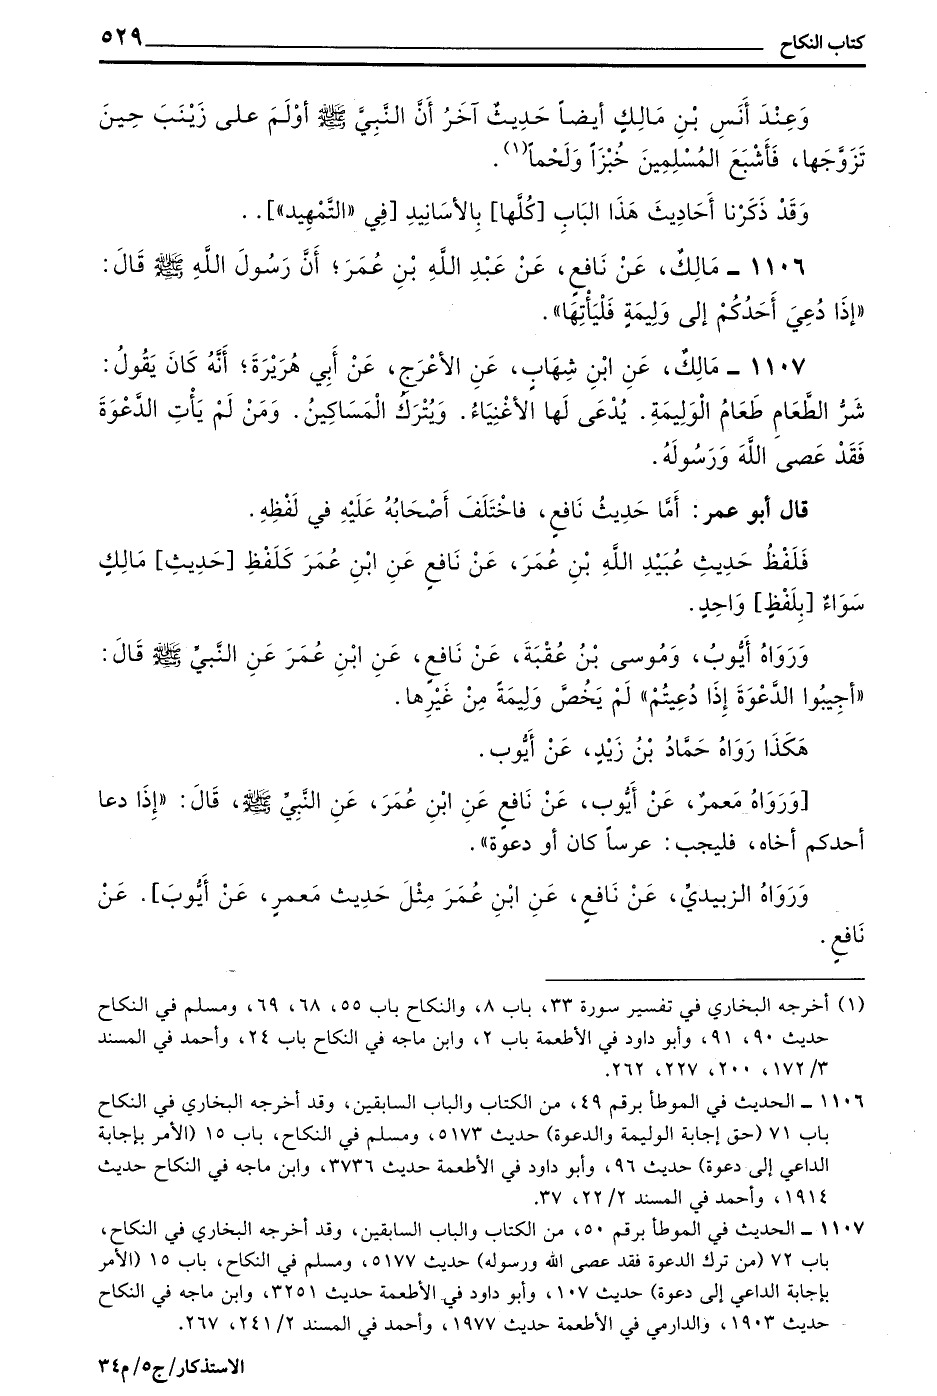 كتاب النكاح ٥٢٩
وَعِنْدَ أَنَسِ بْنِ مَالِكٍ أيضاً حَدِيثٌ آخَرُ أَنَّ النَّبِيَّ ﷺ أوْلَمَ على زَيْنَبَ حِينَ
تَزَوَّجَها، فَأَشْبَعَ المُسْلِمِينَ خُبْزَاً وَلَحْماً(١).
وَقَدْ ذَكَرْنا أَحَادِيثَ هَذَا البَابِ [كُلَّها] بِالأسَانِيدِ [فِي «التَّمْهِيد»]. .
١١٠٦ ـ مَالِكٌ، عَنْ نَافِعٍ، عَنْ عَبْدِ اللَّهِ بْنِ عُمَرَ؛ أَنَّ رَسُولَ اللَّهِ ﷺ قَالَ:
«إذَا دُعِيَ أَحَدُكُمْ إلى وَلِيمَةٍ فَلْيَأْتِهَا».
١١٠٧ ـ مَالِكٌ، عَنِ ابْنِ شِهَابٍ، عَنِ الأعْرَجِ، عَنْ أَبِي هُرَيْرَةَ؛ أَنَّهُ كَانَ يَقُولُ:
شَرُّ الطَّعَامِ طَعَامُ الْوَلِيمَةِ. يُدْعَى لَها الأغْنِيَاءُ. وَيُتْرَكُ الْمَسَاكِينُ. وَمَنْ لَمْ يَأْتِ الدَّعْوَةَ
فَقَدْ عَصىَ اللَّهَ وَرَسُولَهُ.
قال أبو عمر: أَمَّا حَدِيثُ نَافِعٍ، فاخْتَلَفَ أَصْحَابُهُ عَلَيْهِ في لَفْظِهِ.
فَلَفْظُ حَدِيثِ عُبَيْدِ اللَّهِ بْنِ عُمَرَ، عَنْ نَافعٍ عَنِ ابْنِ عُمَرَ كَلَفْظِ [حَدِيثِ] مَالِكٍ
سَوَاءٌ [بِلَفْظٍ] وَاحِدٍ.
وَرَوَاهُ أَيُّوبُ، وَمُوسى بْنُ عُقْبَةَ، عَنْ نَافعٍ، عَنِ ابْنِ عُمَرَ عَنِ النَّبيِّ ﷺ قَالَ:
«أجِيبُوا الدَّعْوَةَ إِذَا دُعِيتُمْ» لَمْ يَخُصَّ وَلِيمَةً مِنْ غَيْرِها.
هَكَذَا رَوَاهُ حَمَّادُ بْنُ زَيْدٍ، عَنْ أيُّوب.
[وَرَوَاهُ مَعمرٌ، عَنْ أَيُّوب، عَنْ نَافعٍ عَنِ ابْنِ عُمَرَ، عَنِ النَّبيِّ ﷺ، قَالَ: «إِذَا دعا
أحدكم أخاه، فليجب: عرساً كان أو دعوة».
وَرَوَاهُ الزبيديُّ، عَنْ نَافعٍ، عَنِ ابْنِ عُمَرَ مِثْلَ حَدِيث مَعمرٍ، عَنْ أَيُّوبَ]. عَنْ
نَافعٍ.
(١) أخرجه البخاري في تفسير سورة ٣٣، باب ٨، والنكاح باب ٥٥، ٦٨، ٦٩، ومسلم في النكاح
حديث ٩٠، ٩١، وأبو داود في الأطعمة باب ٢، وابن ماجه في النكاح باب ٢٤، وأحمد في المسند
٣/ ١٧٢، ٢٠٠، ٢٢٧، ٢٦٢.
١١٠٦ ـ الحديث في الموطأ برقم ٤٩، من الكتاب والباب السابقين، وقد أخرجه البخاري في النكاح
باب ٧١ (حق إجابة الوليمة والدعوة) حديث ٥١٧٣، ومسلم في النكاح، باب ١٥ (الأمر بإجابة
الداعي إلى دعوة) حديث ٩٦، وأبو داود في الأطعمة حديث ٣٧٣٦، وابن ماجه في النكاح حديث
١٩١٤، وأحمد في المسند ٢/ ٢٢، ٣٧.
١١٠٧ ـ الحديث في الموطأ برقم ٥٠، من الكتاب والباب السابقين، وقد أخرجه البخاري في النكاح،
باب ٧٢ (من ترك الدعوة فقد عصى الله ورسوله) حديث ٥١٧٧، ومسلم في النكاح، باب ١٥ (الأمر
بإجابة الداعي إلى دعوة) حديث ١٠٧، وأبو داود في الأطعمة حديث ٣٢٥١، وابن ماجه في النكاح
حديث ١٩٠٣، والدارمي في الأطعمة حديث ١٩٧٧، وأحمد في المسند ٢/ ٢٤١، ٢٦٧.
الاستذكار/ ج٥/ م٣٤